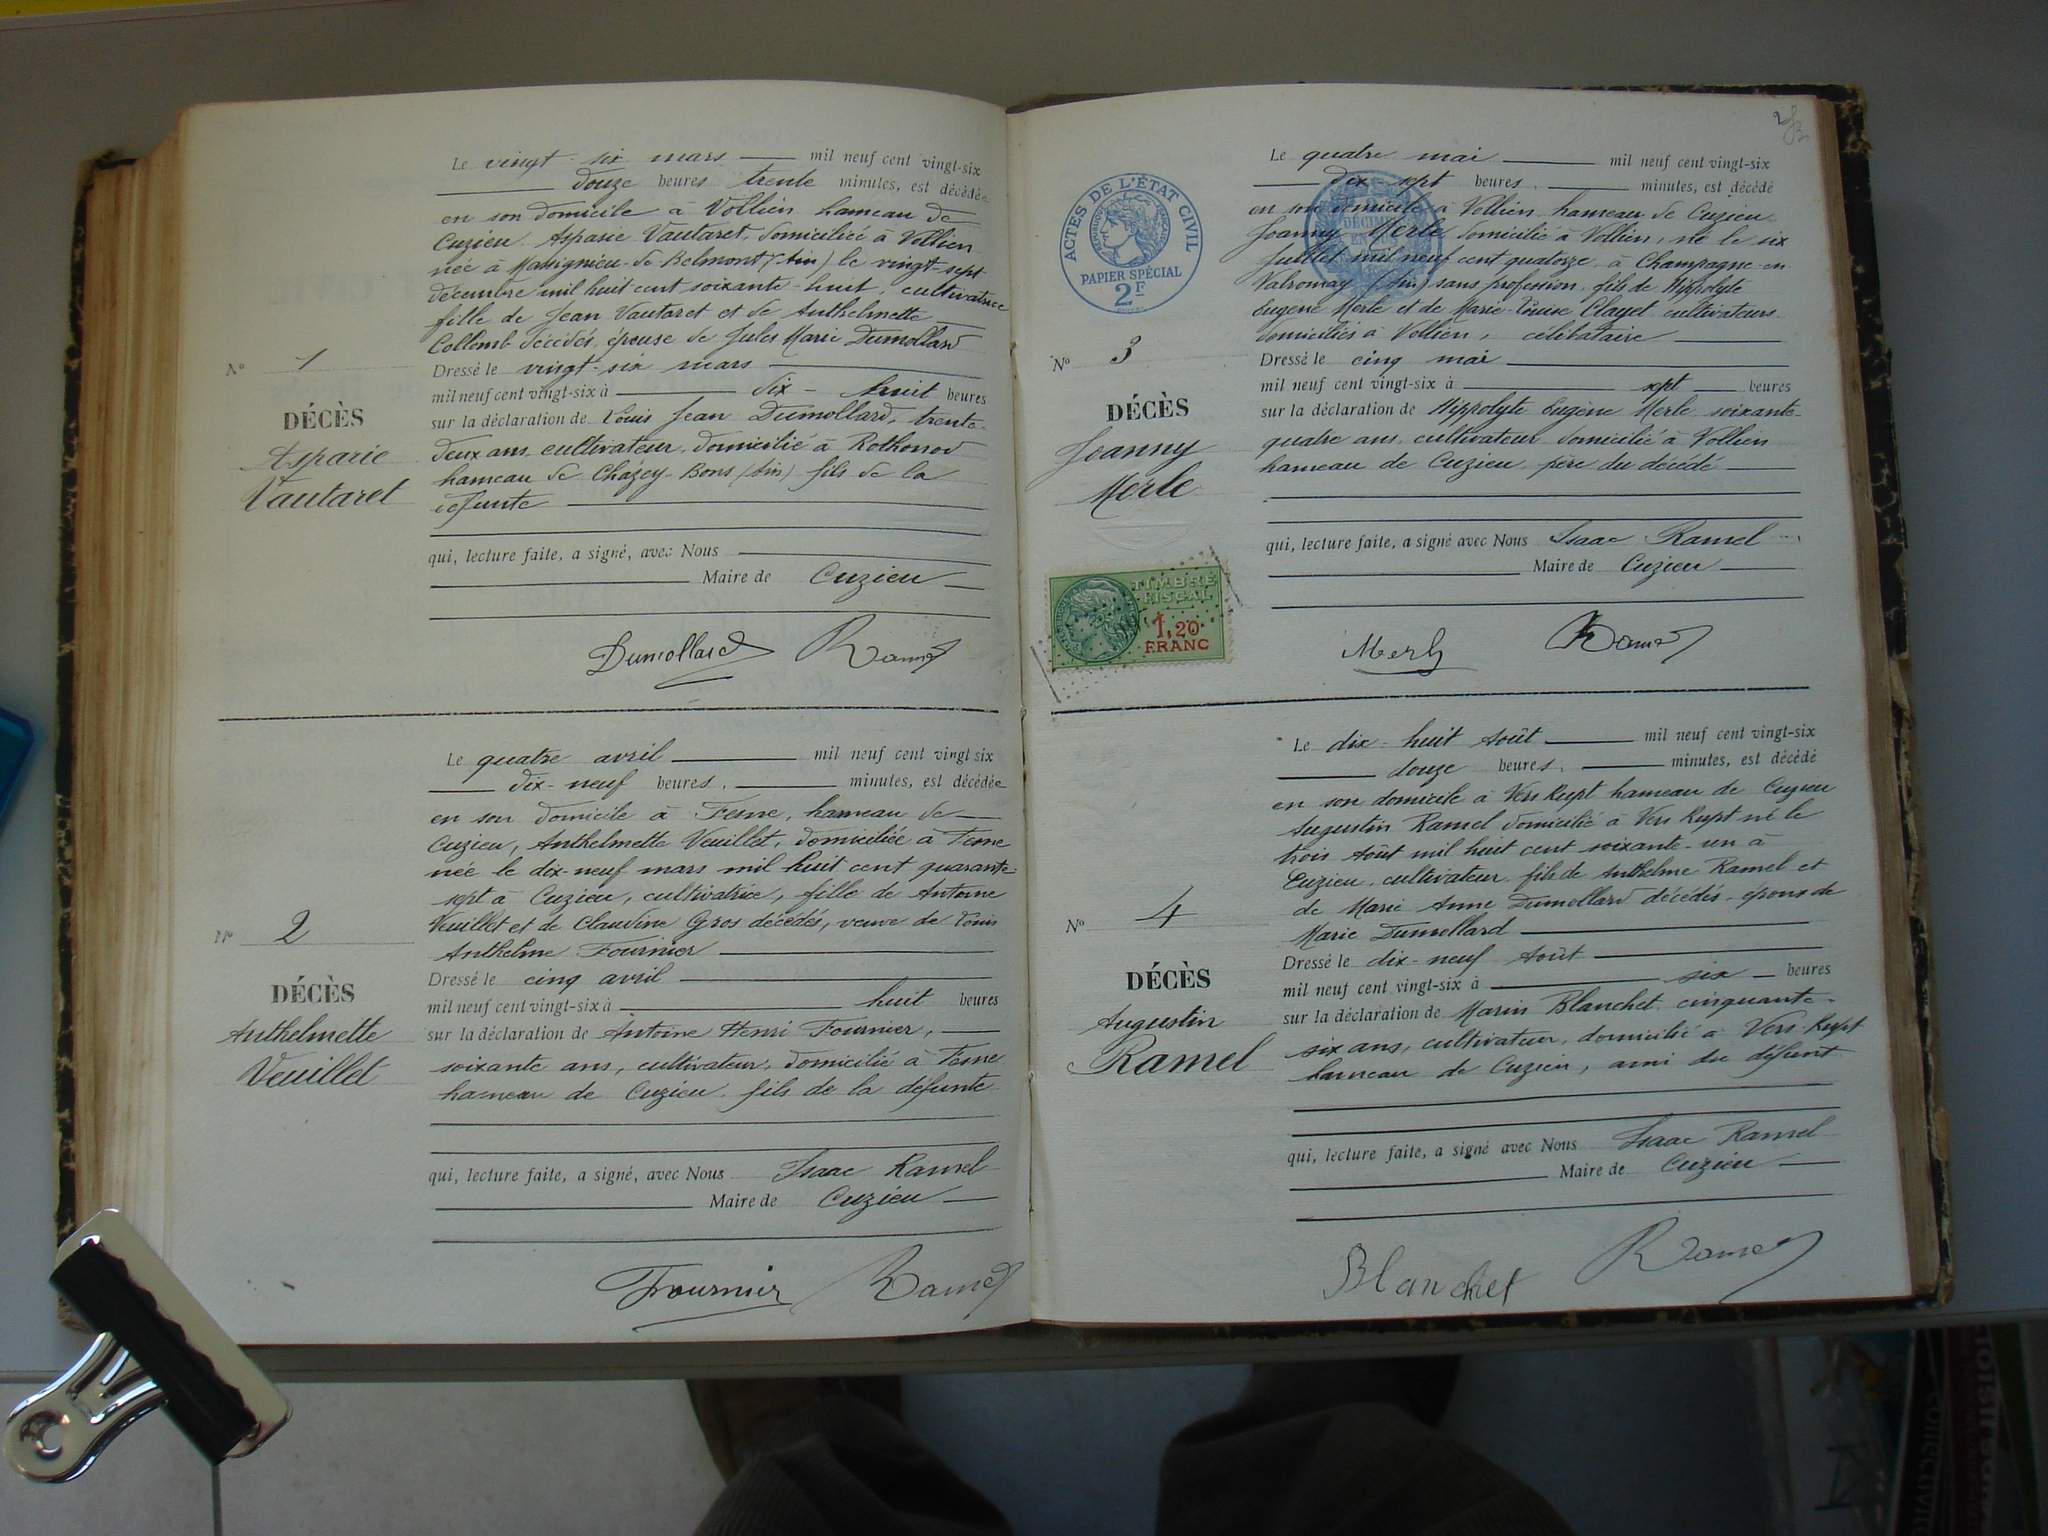 Le vingt-six mars mil neuf cent vingt-six
douze heures trente minutes, est décédée
en son domicile à Vollien hameau de
Cuzieu Aspasie Vautaret, domiciliée à Vollien
née à Massignieu-de-Belmont (Ain) le vingt-sept
décembre mil huit cent soixante-huit, cultivatrice
fille de Jean Vautaret et de Anthelmette
Collomb décédés, épouse de Jules Marie Dumollard
Nº 1
Dressé le vingt-six mars
mil neuf cent vingt-six à dix-huit heures
DÉCÈS
Aspasie
Vautaret
sur la déclaration de Louis Jean Dumollard, trente-
deux ans, cultivateur, domicilié à Rothonod
hameau de Chazey-Bons (Ain) fils de la
défunte
qui, lecture faite, a signé, avec Nous
Maire de Cuzieu
Dumollard Ramel
Le quatre avril mil neuf cent vingt-six
dix-neuf heures, minutes, est décédée
en son domicile à Fesne, hameau de
Cuzieu, Anthelmette Veuillet, domiciliée à Fesne
née le dix-neuf mars mil huit cent quarante-
sept à Cuzieu, cultivatrice, fille de Antoine
Veuillet et de Claudine Gros décédés, veuve de Louis
Anthelme Fournier
Nº 2
Dressé le cinq avril
mil neuf cent vingt-six à huit heures
DÉCÈS
Anthelmette
Veuillet
sur la déclaration de Antoine Henri Fournier,
soixante ans, cultivateur, domicilié à Fesne
hameau de Cuzieu, fils de la défunte
qui, lecture faite, a signé, avec Nous Isaac Ramel
Maire de Cuzieu
Fournier Ramel
Le quatre mai mil neuf cent vingt-six
dix-sept heures, minutes, est décédé
en son domicile à Vollien hameau de Cuzieu
Joanny Merle domicilié à Vollien, né le six
Juillet mil neuf cent quatorze à Champagne-en-
Valromay (Ain) sans profession, fils de Hippolyte
Eugène Merle et de Marie-Louise Clayet cultivateurs
domiciliés à Vollien, célibataire
ACTES DE L'ÉTAT CIVIL
PAPIER SPÉCIAL
2F
Nº 3
Dressé le cinq mai
mil neuf cent vingt-six à sept heures
DÉCÈS
Joanny
Merle
sur la déclaration de Hippolyte Eugène Merle soixante-
quatre ans, cultivateur domicilié à Vollien
hameau de Cuzieu, père du décédé
qui, lecture faite, a signé avec Nous Isaac Ramel
Maire de Cuzieu
TIMBRE
FISCAL
1,20
FRANC
Merle Ramel
Le dix-huit Août mil neuf cent vingt-six
douze heures, minutes, est décédé
en son domicile à Vers Rupt hameau de Cuzieu
Augustin Ramel domicilié à Vers Rupt né le
trois Août mil huit cent soixante-un à
Cuzieu, cultivateur, fils de Anthelme Ramel et
de Marie Anne Dumollard décédés, époux de
Marie Dumollard
Nº 4
Dressé le dix-neuf Août
mil neuf cent vingt-six à six heures
DÉCÈS
Augustin
Ramel
sur la déclaration de Marin Blanchet cinquante-
six ans, cultivateur, domicilié à Vers-Rupt
hameau de Cuzieu, ami du défunt
qui, lecture faite, a signé avec Nous Isaac Ramel
Maire de Cuzieu
Blanchet Ramel